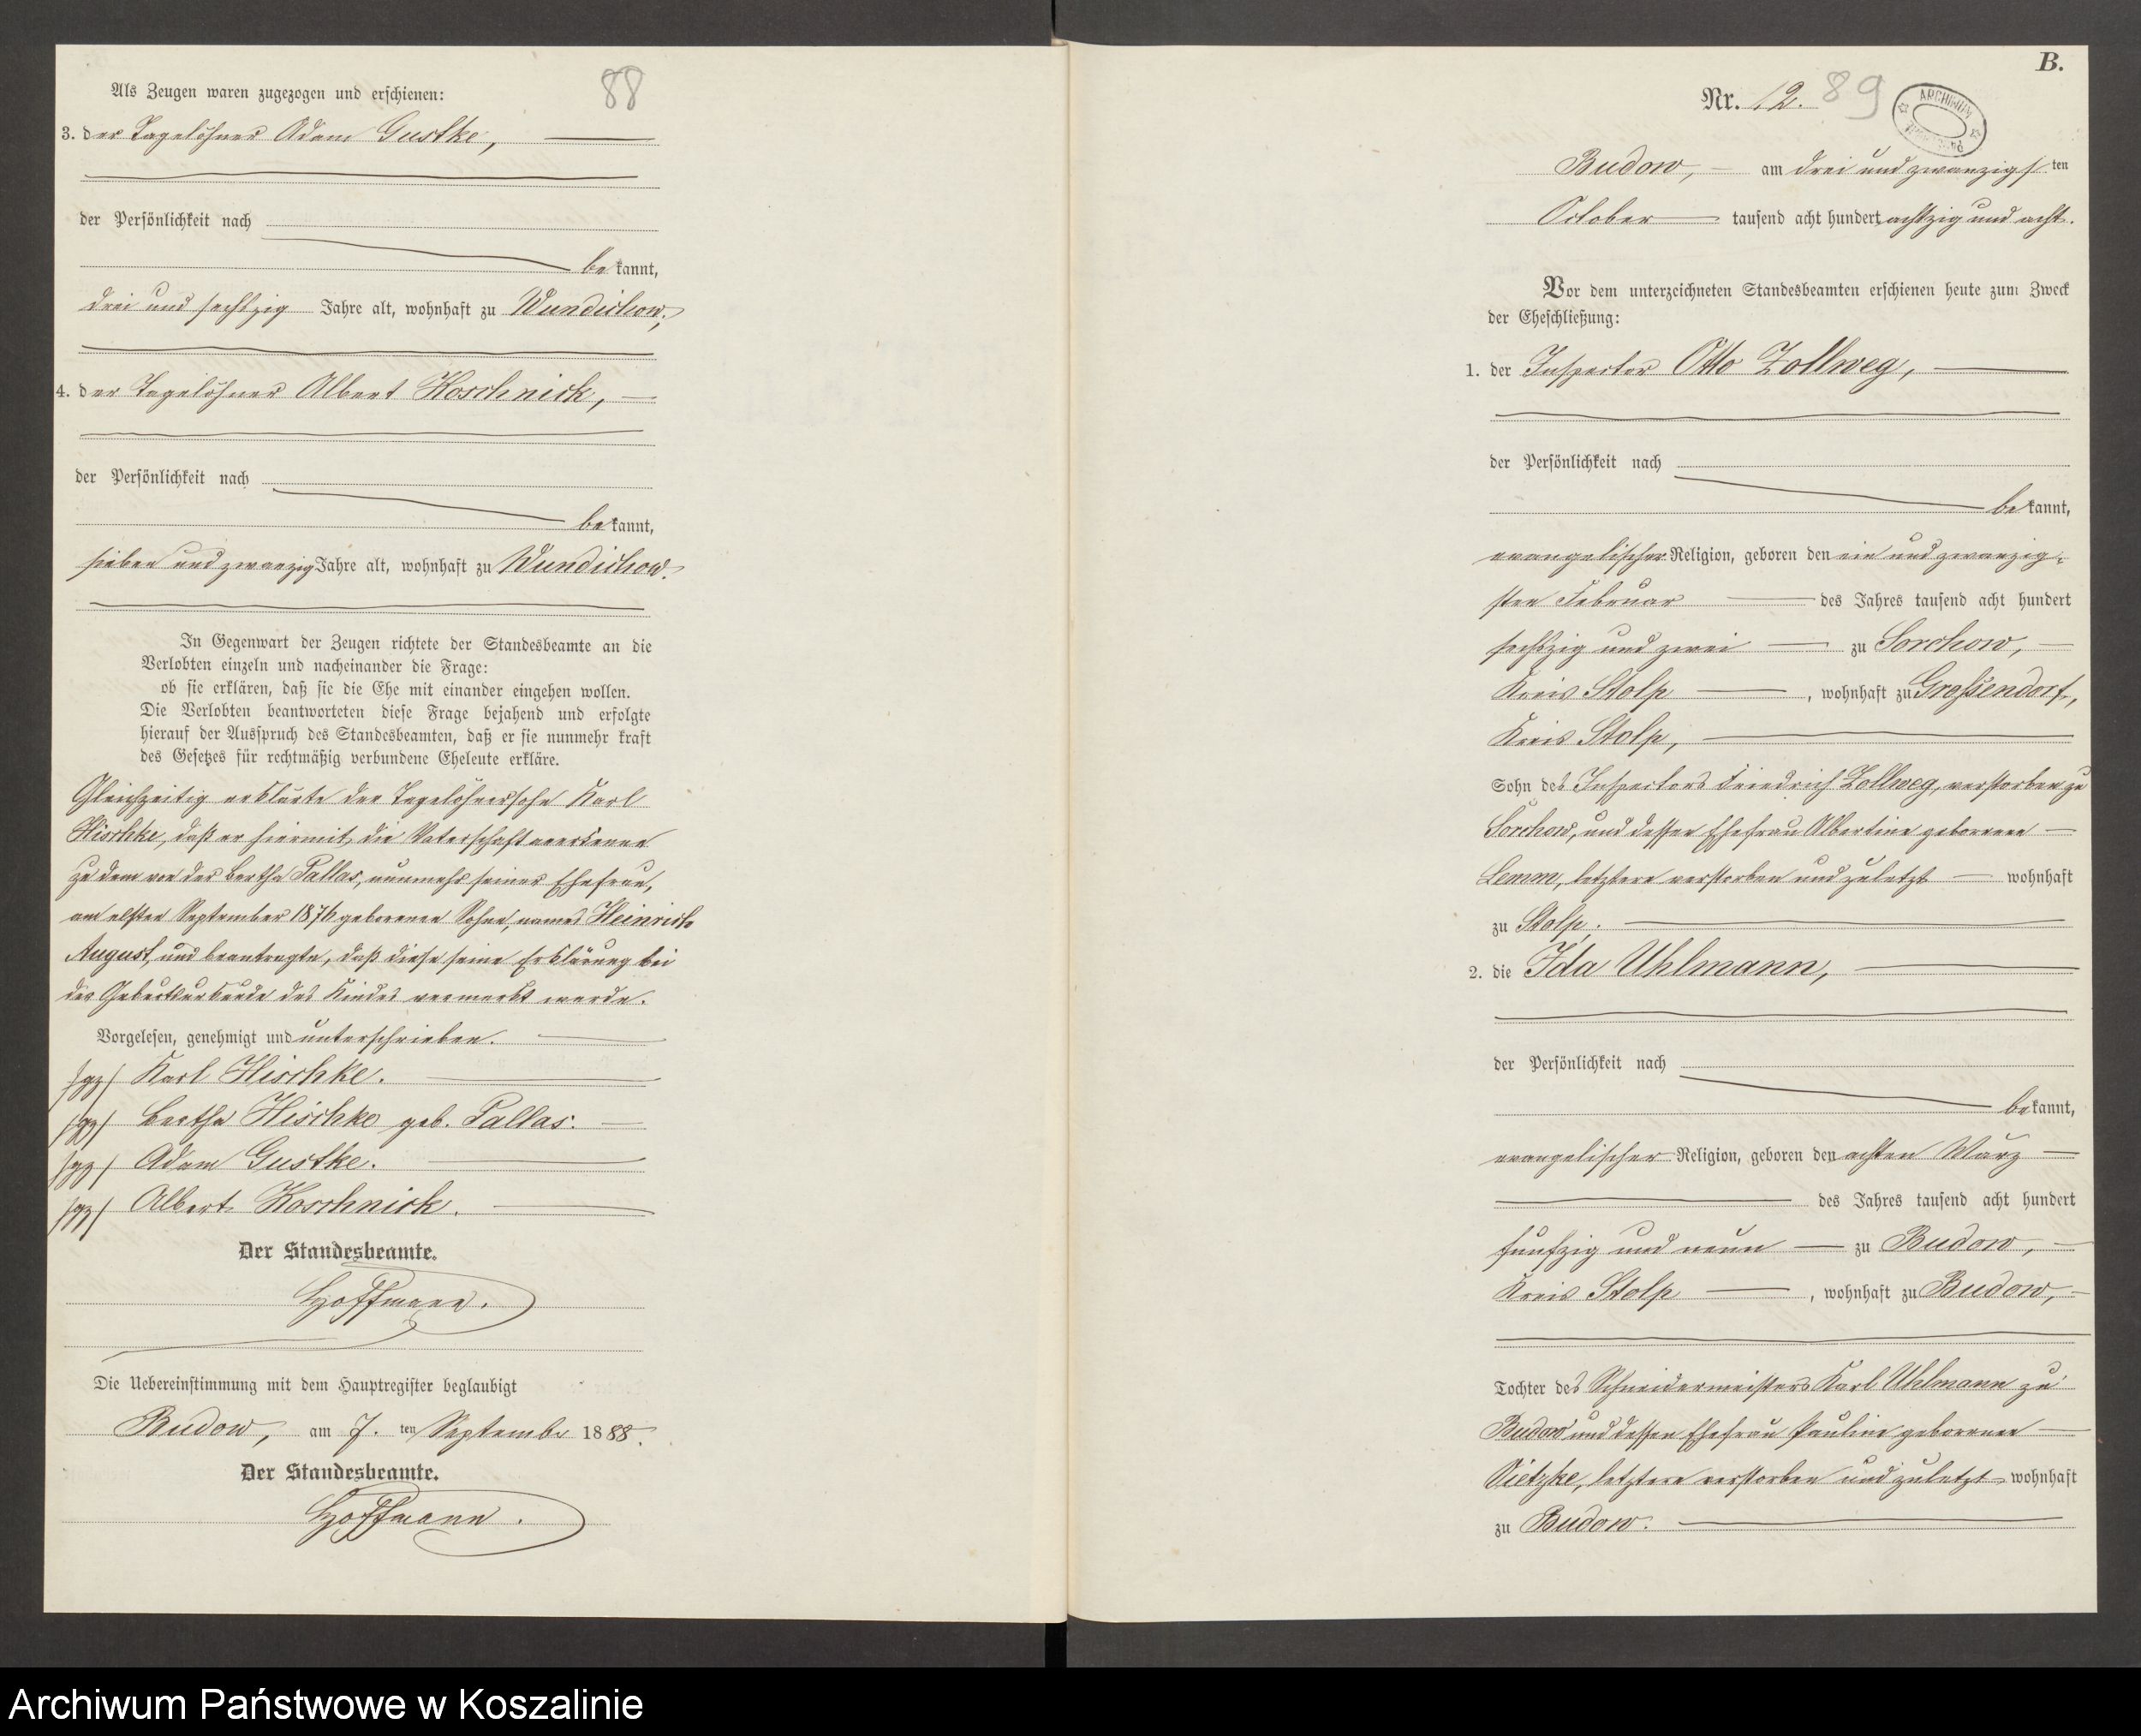 88
Als Zeugen waren zugezogen und erschienen:
3. der Tagelöhner Adam Gustke,
der Persönlichkeit nach
bekannt,
drei und sechszig Jahre alt, wohnhaft zu Wundichow;
4. der Tagelöhner Albert Koschnick,
der Persönlichkeit nach
bekannt,
sieben und zwanzig Jahre alt, wohnhaft zu Wundichow.
In Gegenwart der Zeugen richtete der Standesbeamte an die
Verlobten einzeln und nacheinander die Frage:
ob sie erklären, daß sie die Ehe mit einander eingehen wollen.
Die Verlobten beantworteten diese Frage bejahend und erfolgte
hierauf der Ausspruch des Standesbeamten, daß er sie nunmehr kraft
des Gesetzes für rechtmäßig verbundene Eheleute erkläre.
Gleichzeitig erklärte der Tagelöhnersohn Karl
Hischke, daß er hiermit die Vaterschaft anerkenne
zu dem von der Bertha Pallas, nunmehr seiner Ehefrau,
am elften September 1876 geborenen Sohne, namens Heinrich
August, und beantragte, daß diese seine Erklärung bei
der Geburtsurkunde des Kindes vermerkt werde.
Vorgelesen, genehmigt und unterschrieben.
/gz/ Karl Hischke.
/gz/ Bertha Hischke geb. Pallas.
/gz/ Adam Gustke.
/gz/ Albert Koschnick.
Der Standesbeamte.
Hoffmann.
Die Uebereinstimmung mit dem Hauptregister beglaubigt
Budow, am 7. ten September 1888.
Der Standesbeamte.
Hoffmann.
B.
Nr. 12. 89
ARCHIWUM
Budow, am drei und zwanzigsten
October tausend acht hundert achtzig und acht.
Vor dem unterzeichneten Standesbeamten erschienen heute zum Zweck
der Eheschließung:
1. der Inspector Otto Zollweg,
der Persönlichkeit nach
bekannt,
evangelischer Religion, geboren den ein und zwanzig-
sten Februar des Jahres tausend acht hundert
sechszig und zwei zu Sorchow,
Kreis Stolp, wohnhaft zu Grossendorf,
Kreis Stolp,
Sohn des Inspectors Friedrich Zollweg, verstorben zu
Sorchow, und dessen Ehefrau Albertine geborenen
Lemm, letztere verstorben und zuletzt wohnhaft
zu Stolp.
2. die Ida Uhlmann,
der Persönlichkeit nach
bekannt,
evangelischer Religion, geboren den achten März
des Jahres tausend acht hundert
funfzig und neun zu Budow,
Kreis Stolp, wohnhaft zu Budow,
Tochter des Schneidermeisters Karl Uhlmann zu
Budow und dessen Ehefrau Pauline geborenen
Vietzke, letztere verstorben und zuletzt wohnhaft
zu Budow.
Archiwum Państwowe w Koszalinie